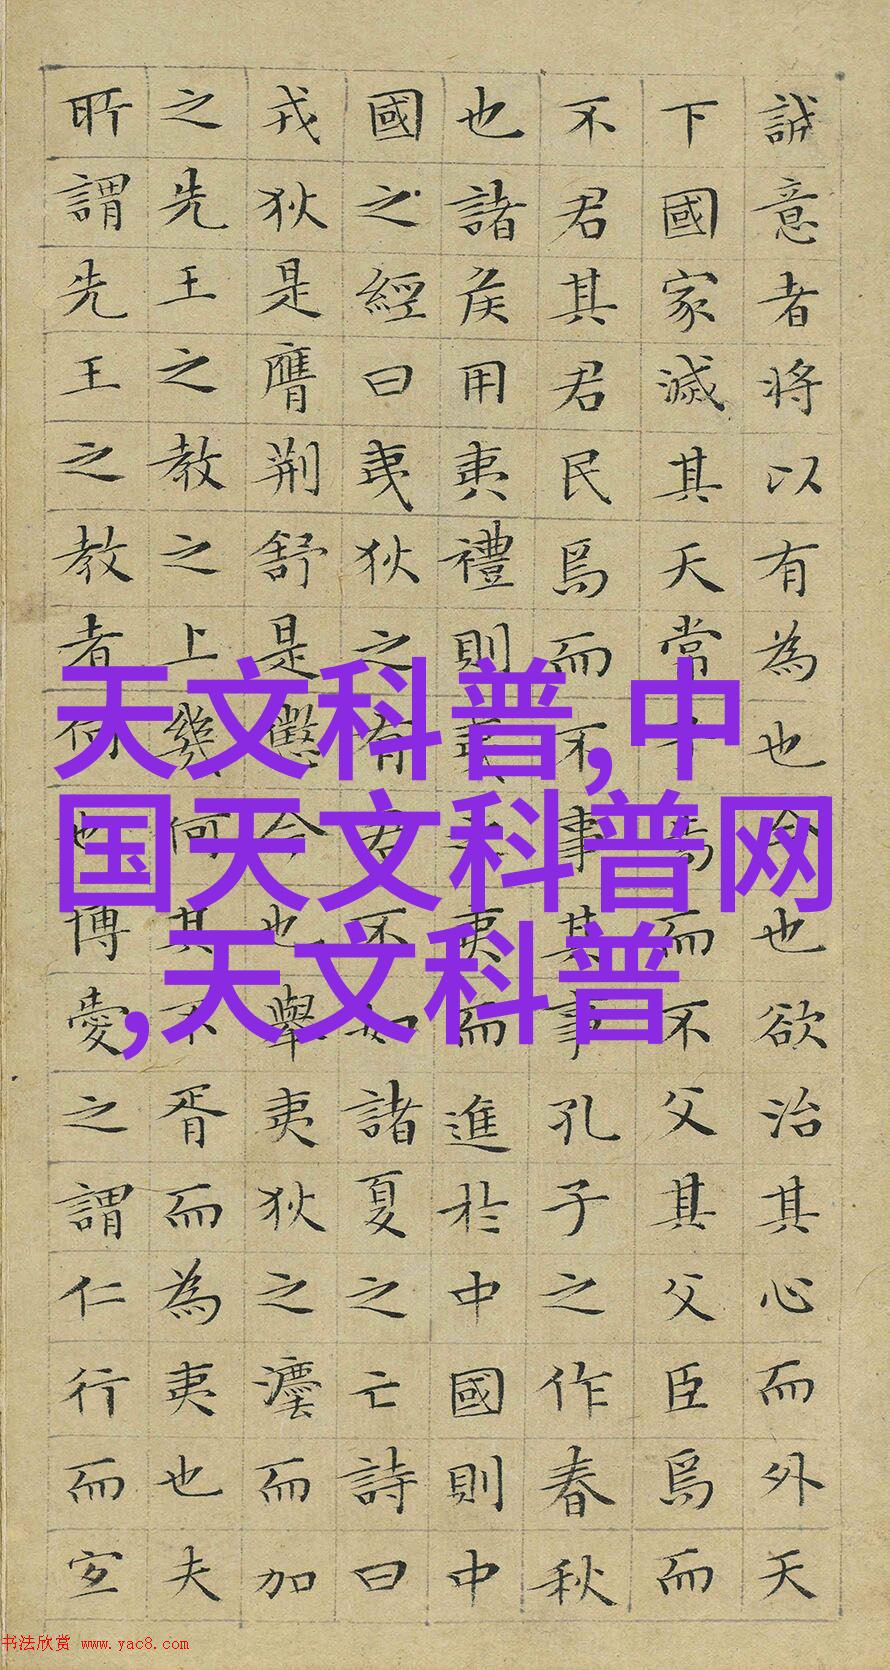 誠意者将以有為也今也欲治其心而外天
下國家滅其天常子焉而不父其父臣焉而
不君其君民焉而不事其事孔子之作春秋
也諸矦用夷禮則夷之夷而進於中國則中
國之經曰夷狄之有君不如諸夏之亡詩曰
戎狄是膺荆舒是懲今也舉夷狄之灋而加
之先王之教之上幾何其不胥而為夷也夫
所謂先王之教者何也博愛之謂仁行而宜
天文科普,中
国天文科普网
,天文科普
书法欣赏 www.yac8.com